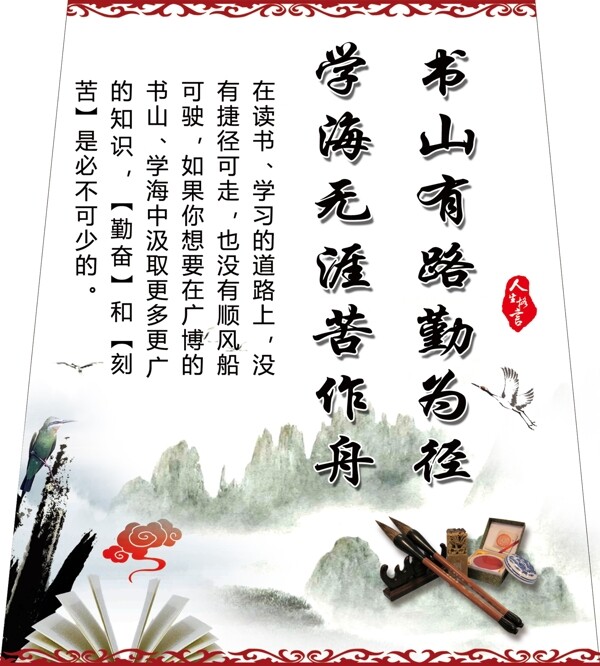 书山有路勤为径
学海无涯苦作舟
人生格言
在读书、学习的道路上，没
有捷径可走，也没有顺风船
可驶，如果你想要在广博的
书山、学海中汲取更多更广
的知识，【勤奋】和【刻
苦】是必不可少的。